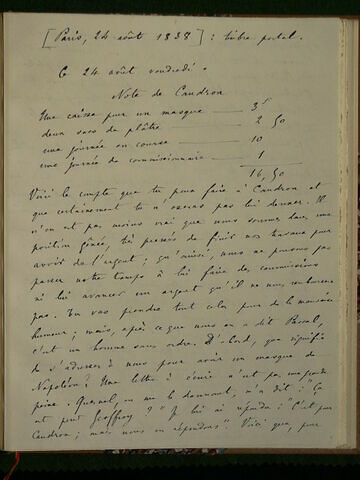 [Paris, 24 août 1838] : timbre postal.
Ce 24 août vendredi.
Note de Caudron
Une caisse pour un masque — 3f
deux sacs de plâtre — 2 50
une journée en course — 10
une journée de commissionnaire — 1
16,50
Voici le compte que tu peux faire à Caudron et
que certainement tu n'oseras pas lui donner. Il
n'en est pas moins vrai que nous sommes dans une
position gênée, très pressés de finir nos travaux pour
avoir de l'argent ; qu'ainsi, nous ne pouvons pas
passer notre temps à lui faire des commissions
ni lui avancer un argent qu'il ne nous remboursera
pas. Tu vas prendre tout cela pour de la mauvaise
humeur ; mais, après ce que nous en a dit Pascal,
c'est un homme sans ordre. D'abord, que signifie
de s'adresser à nous pour avoir un masque de
Napoléon ? Une lettre à écrire n'est pas grande
peine. Quesnel, en me le donnant, m'a dit : "Ça
est pour Geoffroy ?" Je lui ai répondu : "C'est pour
Caudron ; mais nous en répondons". Voici que, pour